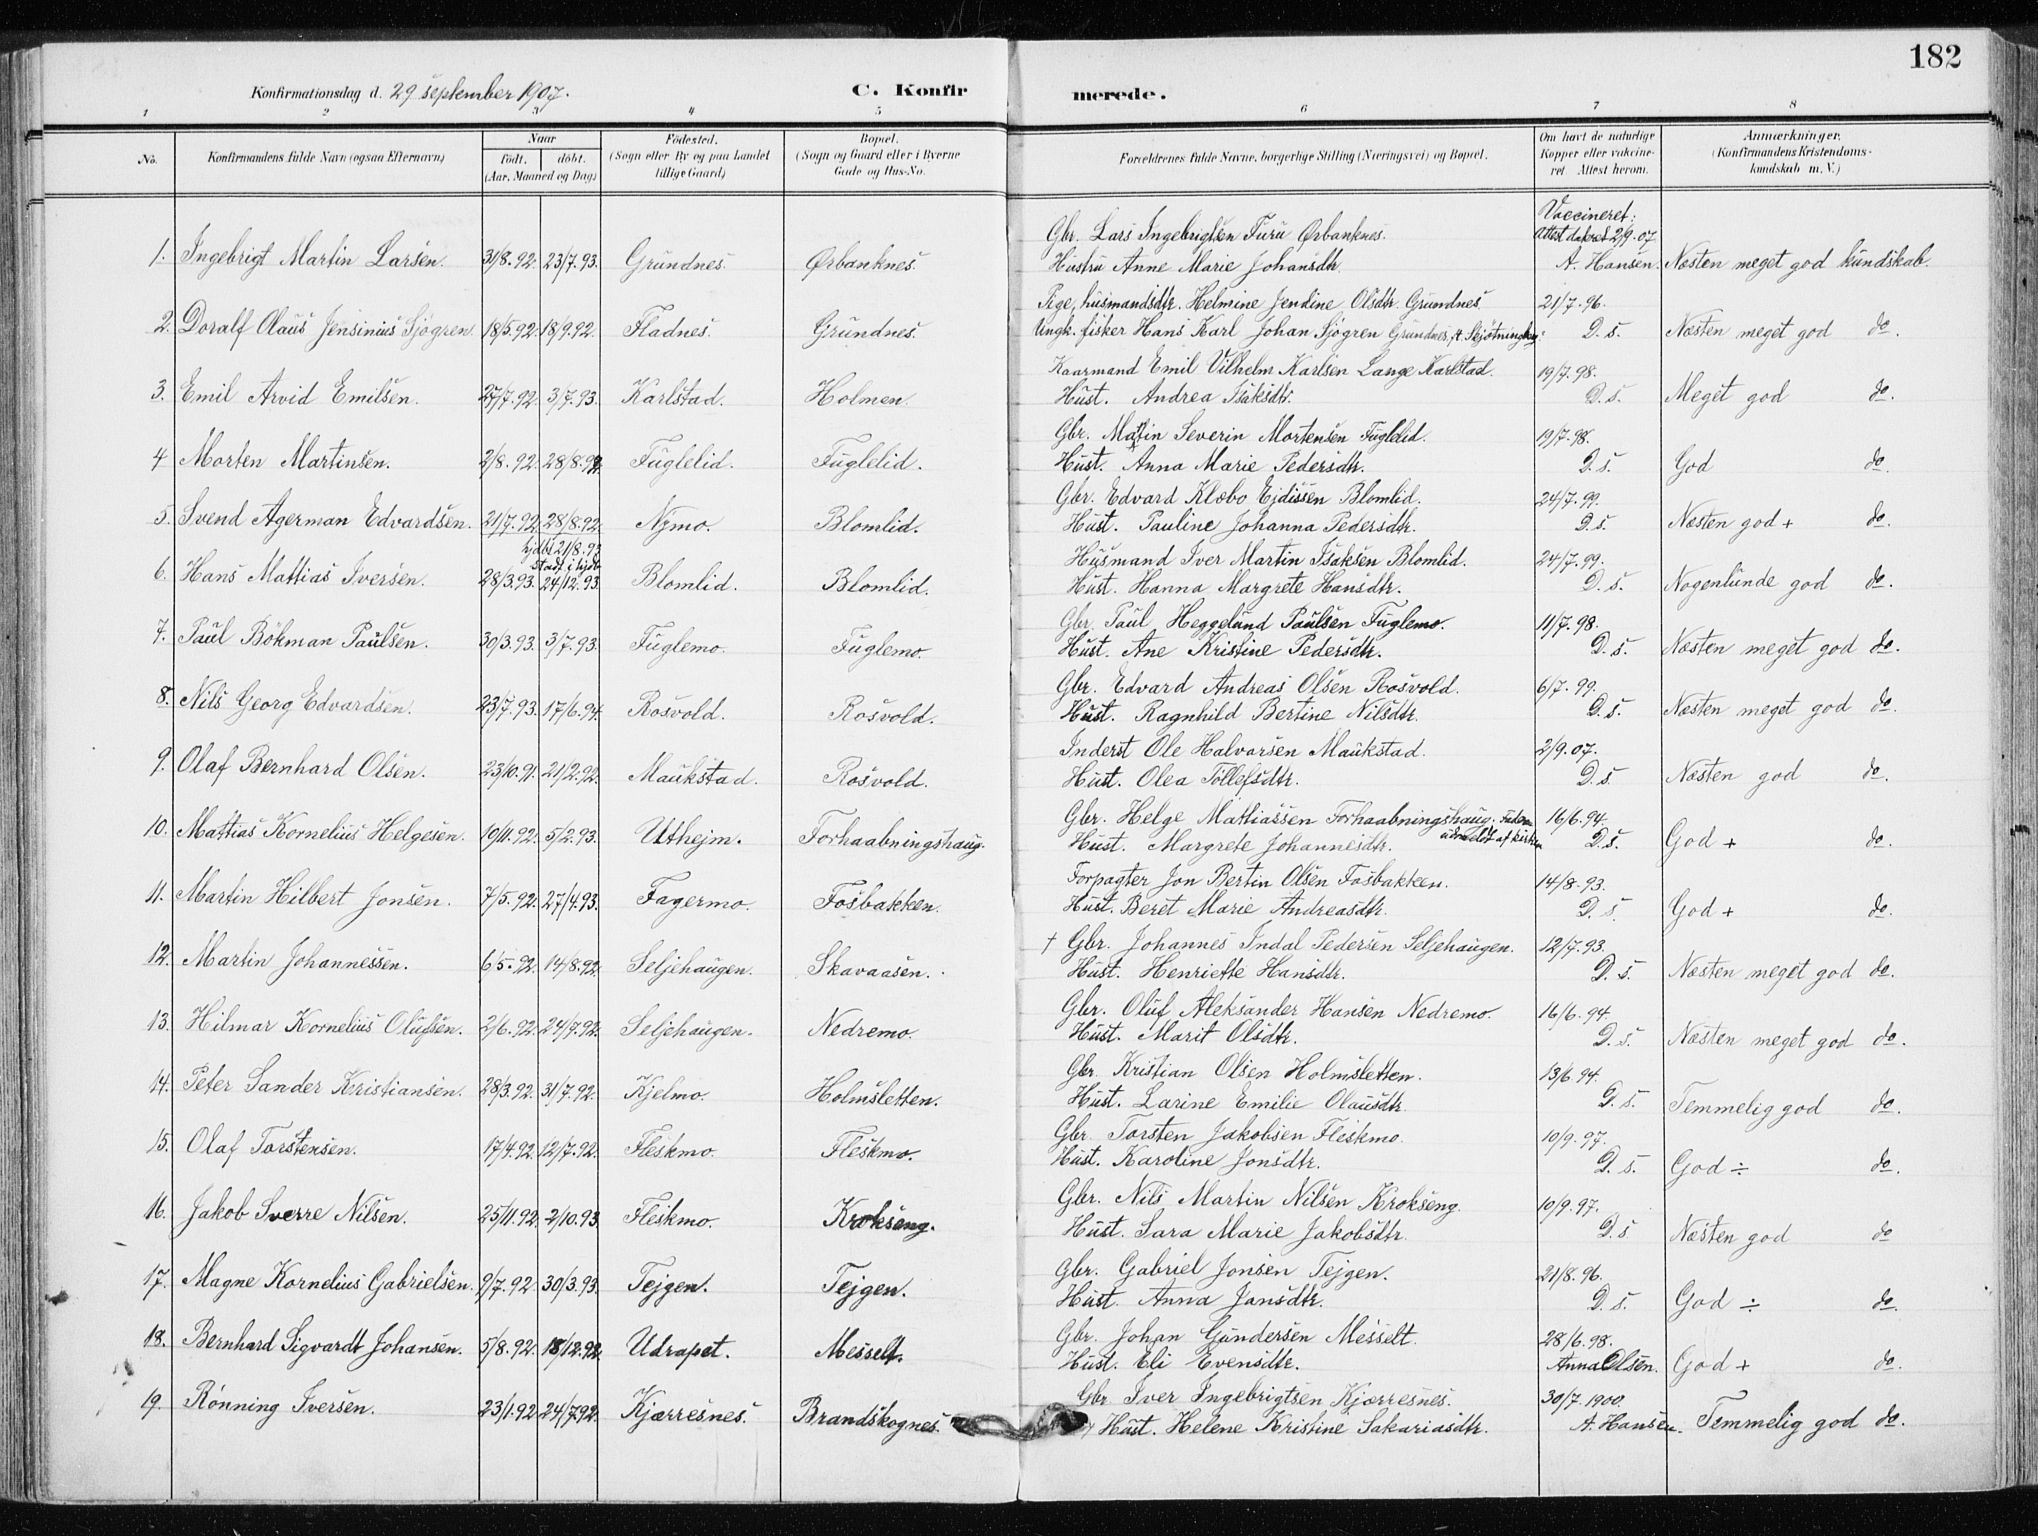 182
Konfirmationsdag d. 29 september 1907.
C. Konfir
merede.
1 2 3 4 5 6 7 8
No. Konfirmandens fulde Navn (ogsaa Efternavn) Naar født. døbt. (Aar, Maaned og Dag) Fødested. (Sogn eller By og paa Landet tillige Gaard) Bopæl. (Sogn og Gaard eller i Byerne Gade og Hus-No. Forældrenes fulde Navne, borgerlige Stilling (Næringsvei) og Bopæl. Om havt de naturlige Kopper eller vakcineret. Attest herom. Anmærkninger. (Konfirmandens Kristendomskundskab m. V.)
Gbr. Lars Ingebrigtsen Furu Ørbanknes. Vaccineret: Attest dateret 2/9.07
1. Ingebrigt Martin Larsen. 31/8.92. 23/7.93. Grundnes. Ørbanknes. Hustru Anne Marie Johansdtr. A. Hansen. Næsten meget god kundskab.
Pige, husmandsdtr. Helmine Jendine Olsdtr. Grundnes 21/7.96.
2. Doralf Olaus Jensinius Sjögren. 18/5.92. 18/9.92. Fladnes. Grundnes. Ungk. fisker Hans Karl Johan Sjögren Grundnes, D. s. Næsten meget god do.
Kaarmand Emil Vilhelm Karlsen Lange Karlstad. 19/7.98.
3. Emil Arvid Emilsen. 27/7.92. 3/7.93. Karlstad. Holmen. Hust. Andrea Isaksdtr. D. s. Meget god do.
Gbr. Martin Severin Mortensen Fuglelid. 19/7.98.
4 Morten Martinsen. 2/8.92. 28/8.92. Fuglelid. Fuglelid. Hust. Anna Marie Pedersdtr. D. s. God do.
Gbr. Edvard Klæbo Ejdissen Blomlid. 24/7.99.
5. Svend Agerman Edvardsen. 21/7.92. 28/8.92. Nymo. Blomlid. Hust. Pauline Johanna Pedersdtr. D. s. Næsten god + do.
hjdbt 21/8.93 stadf. i Husmand Iver Martin Isaksen Blomlid. 24/7.99.
6. Hans Mattias Iversen. 28/3.93. 24/12.93. Blomlid. Blomlid. Hust. Hanna Margrete Hansdtr. D. s. Nogenlunde god do.
Gbr. Paul Heggelund Paulsen Fuglemo. 11/7.98.
7. Paul Bökman Paulsen. 30/3.93. 3/7.93. Fuglemo. Fuglemo. Hust. Ane Kristine Pedersdtr. D. s. Næsten meget god do.
Gbr. Edvard Andreas Olsen Rosvold. 6/7.99.
8. Nils Georg Edvardsen. 23/7.93. 17/6.94. Rosvold. Rosvold. Hust. Ragnhild Bertine Nilsdtr. D. s. Næsten meget god do.
Inderst Ole Halvorsen Maukstad. 2/9.07.
9. Olaf Bernhard Olsen. 23/10.91. 21/2.92. Maukstad. Rosvold. Hust. Olea Tollefsdtr. D. s. Næsten god do.
Gbr. Helge Mattiassen Forhaabningshaug. Faderen udmeldt af kirken 16/6.94.
10. Mattias Kornelius Helgesen. 10/11.92. 5/2.93. Uthejm. Forhaabningshaug. Hust. Margrete Johannesdtr. D. s. God + do.
Forpagter Jon Bertin Olsen Fosbakken. 14/8.93.
11. Martin Hilbert Jonsen. 7/5.92. 27/4.93. Fagermo. Fosbakken. Hust. Beret Marie Andreasdtr. D. s. God + do.
† Gbr. Johannes Indal Pedersen Seljehaugen. 12/7.93.
12. Martin Johannessen. 6/5.92. 14/8.92. Seljehaugen. Skavaasen. Hust. Henriette Hansdtr. D. s. Næsten meget god do.
Gbr. Oluf Aleksander Hansen Nedremo. 16/6.94.
13. Hilmar Kornelius Olufsen. 2/6.92. 24/7.92. Seljehaugen. Nedremo. Hust. Marit Olsdtr. D. s. Næsten meget god do.
Gbr. Kristian Olsen Holmsletten. 13/6.94.
14. Peter Sander Kristiansen. 28/3.92. 31/7.92. Kjelmo. Holmsletten. Hust. Larine Emilie Olausdtr. D. s. Temmelig god do.
Gbr. Torsten Jakobsen Fleskmo. 10/9.97.
15. Olaf Torstensen. 17/4.92. 12/7.92. Fleskmo. Fleskmo. Hust. Karoline Jonsdtr. D. s. God ÷ do.
Gbr. Nils Martin Nilsen Krokseng. 10/9.97.
16. Jakob Sverre Nilsen. 25/11.92. 2/10.93. Fleskmo. Krokseng. Hust. Sara Marie Jakobsdtr. D. s. Næsten god do
Gbr. Gabriel Jonsen Tejgen. 21/8.96.
17. Magne Kornelius Gabrielsen. 9/7.92. 30/3.93. Tejgen. Tejgen. Hust. Anna Jansdtr. D. s. God ÷ do.
Gbr. Johan Gundersen Messelt 28/6.98.
18. Bernhard Sigvardt Johansen. 5/8.92. 18/12.92. Udrapet. Messelt. Hust. Eli Evensdtr. Anna Olsen. God + do.
Gbr. Iver Ingebrigtsen Kjærresnes. 30/7.1900.
19. Rönning Iversen. 23/1.92. 24/7.92. Kjærresnes. Brandskognes. † Hust. Helene Kristine Sakariasdtr. A. Hansen. Temmelig god do.